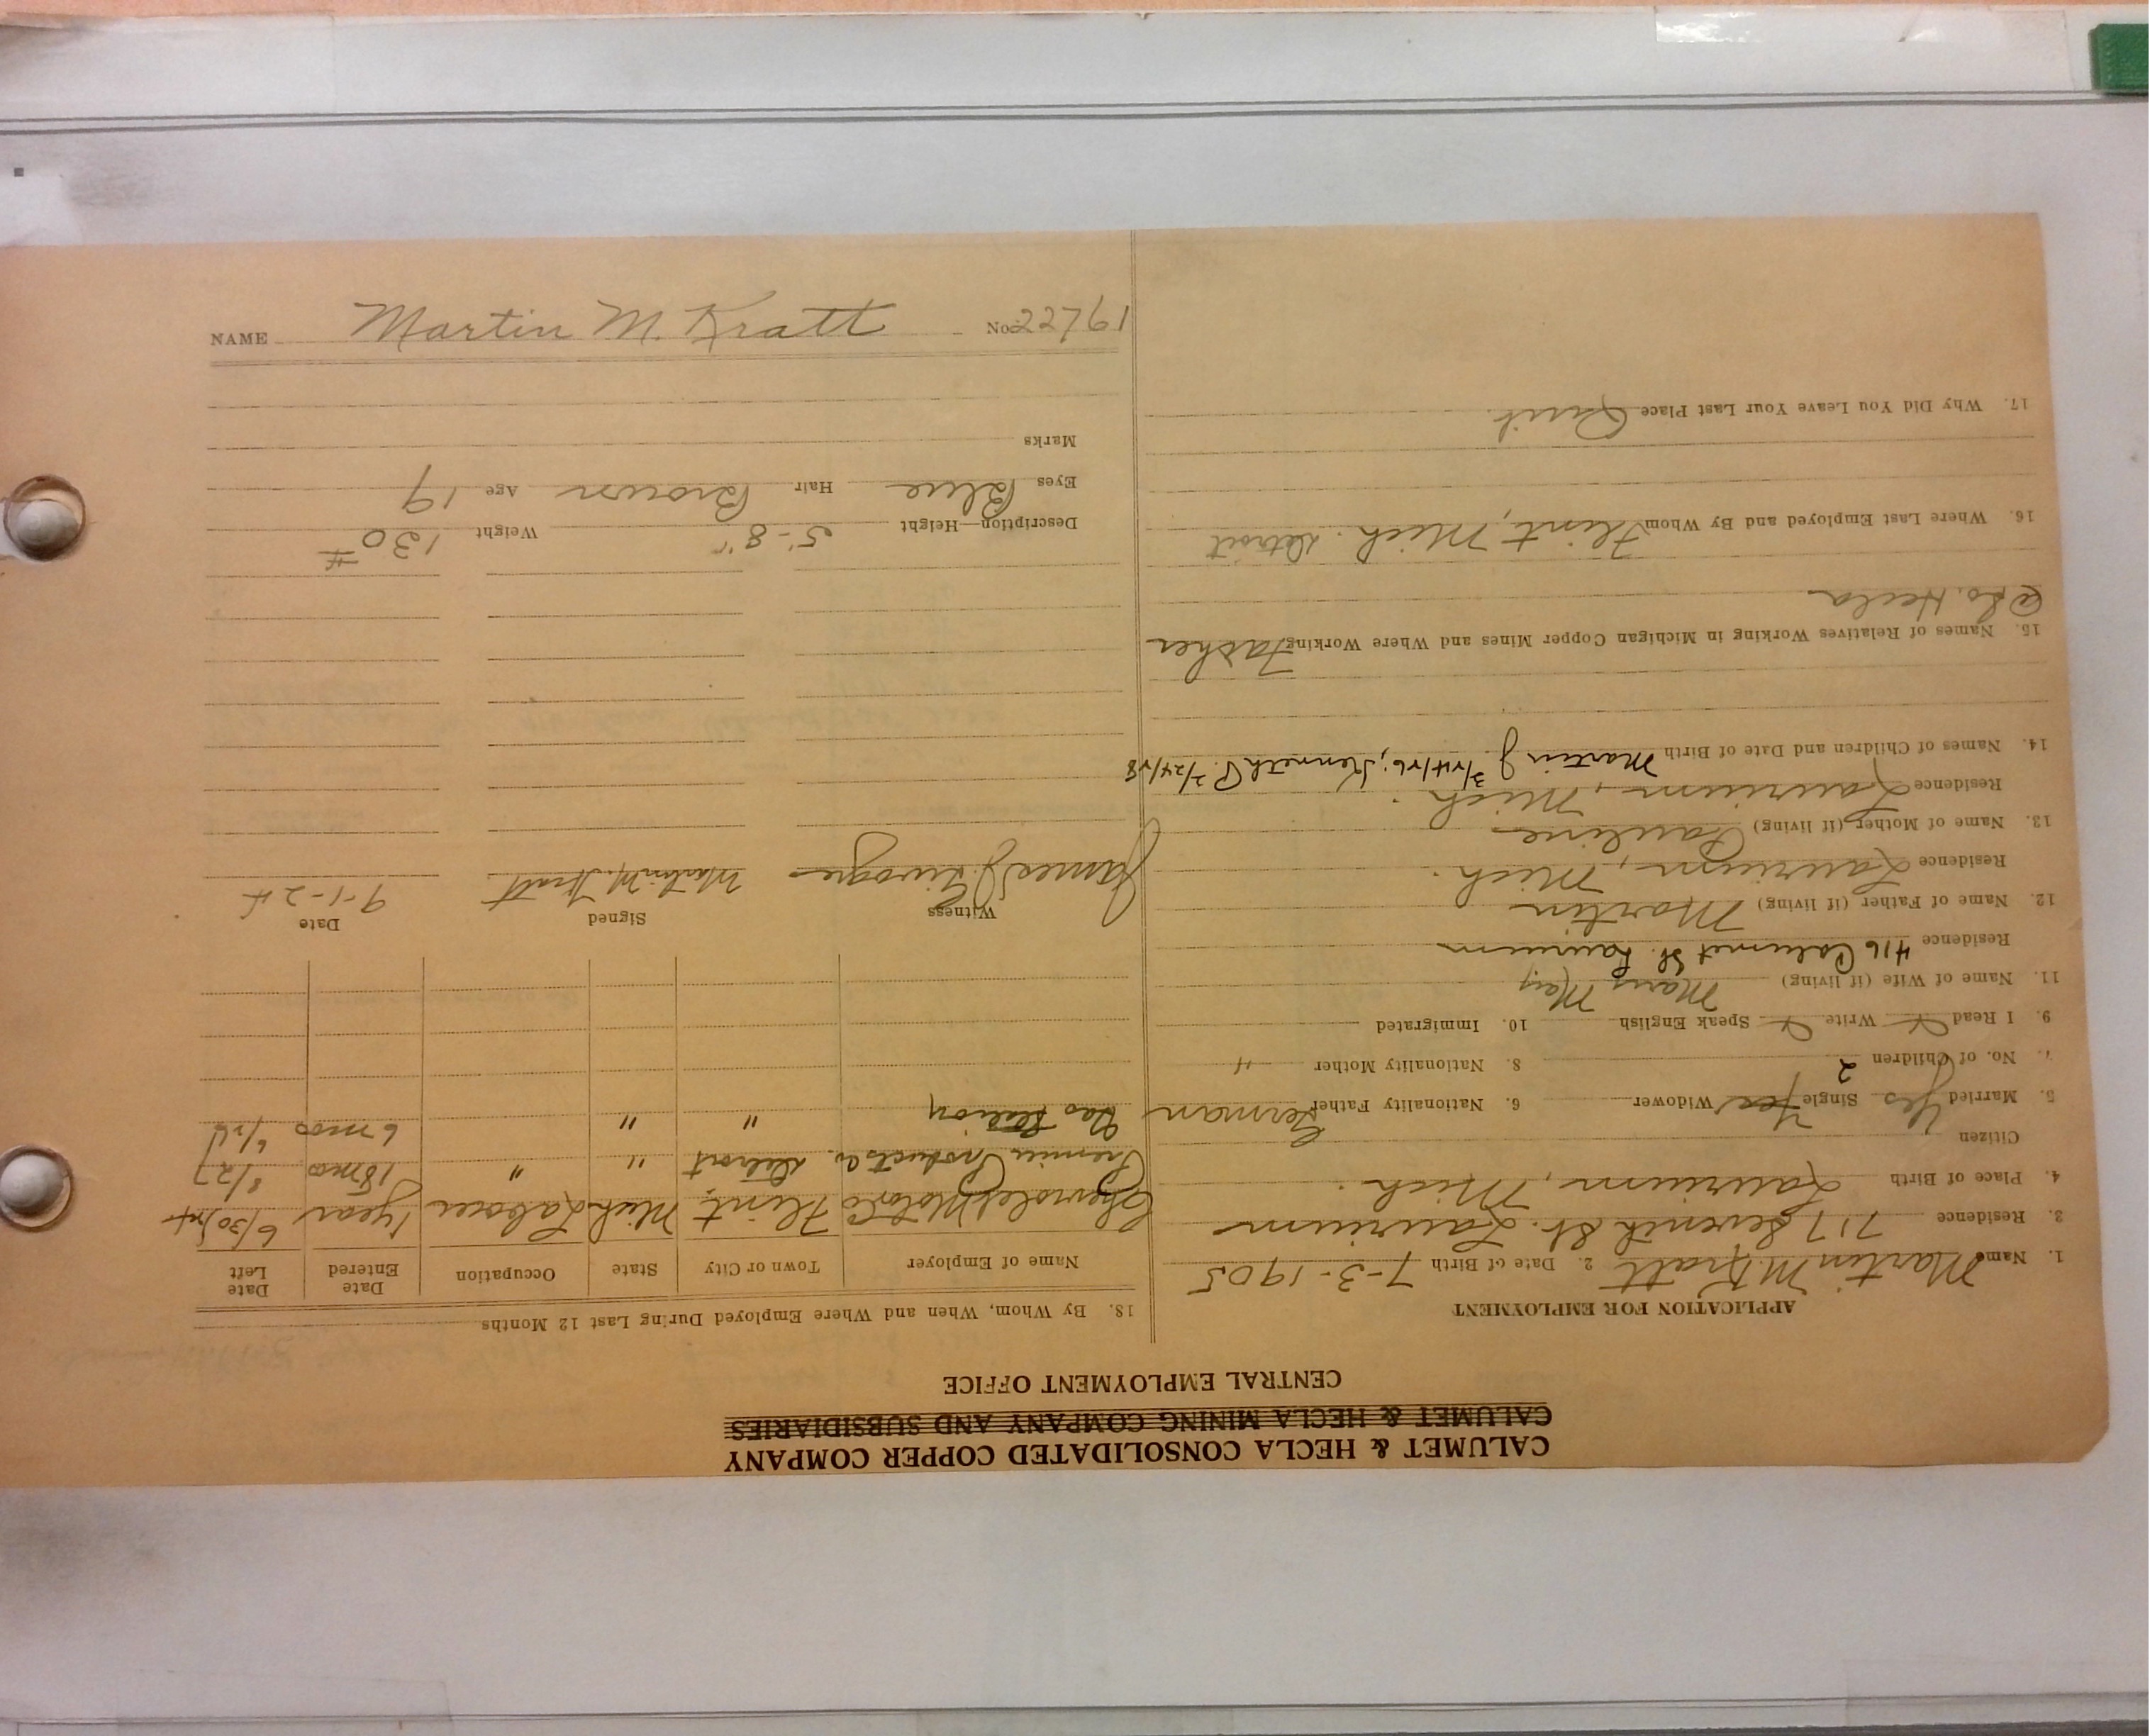 CALUMET & HECLA CONSOLIDATED COPPER COMPANY
CALUMET & HECLA MINING COMPANY AND SUBSIDIARIES
CENTRAL EMPLOYMENT OFFICE
APPLICATION FOR EMPLOYMENT
1. Name Martin M. Kratt 2. Date of Birth 7-3-1905
3. Residence 717 Seventh St. Laurium
4. Place of Birth Laurium, Mich.
Citizen
5. Married Yes Single Yes Widower 6. Nationality Father German
7. No. of Children 2 8. Nationality Mother "
9. I Read Write Speak English 10. Immigrated
11. Name of Wife (if living) Mary May
Residence 416 Calumet St. Laurium
12. Name of Father (if living) Martin
Residence Laurium, Mich.
13. Name of Mother (if living) Pauline
Residence Laurium, Mich.
14. Names of Children and Date of Birth Martin J. Kenneth P. 2/24/28
15. Names of Relatives Working in Michigan Copper Mines and Where Working Father
@ So. Hecla
16. Where Last Employed and By Whom Flint, Mich. Detroit
17. Why Did You Leave Your Last Place Quit.
18. By Whom, When and Where Employed During Last 12 Months
Name of Employer Town or City State Occupation Date Entered Date Left
Chevrolet Motor Co Flint Mich Laborer 1 year 6/30/24
Premier Products Co. Detroit " " 18 mos 8/27
Gas Station " " 6 mos
Witness Signed Date
James J. Martin M. Kratt 9-1-24
Description—Height 5'-8" Weight 130#
Eyes Blue Hair Brown Age 19
Marks
NAME Martin M. Kratt No. 22761